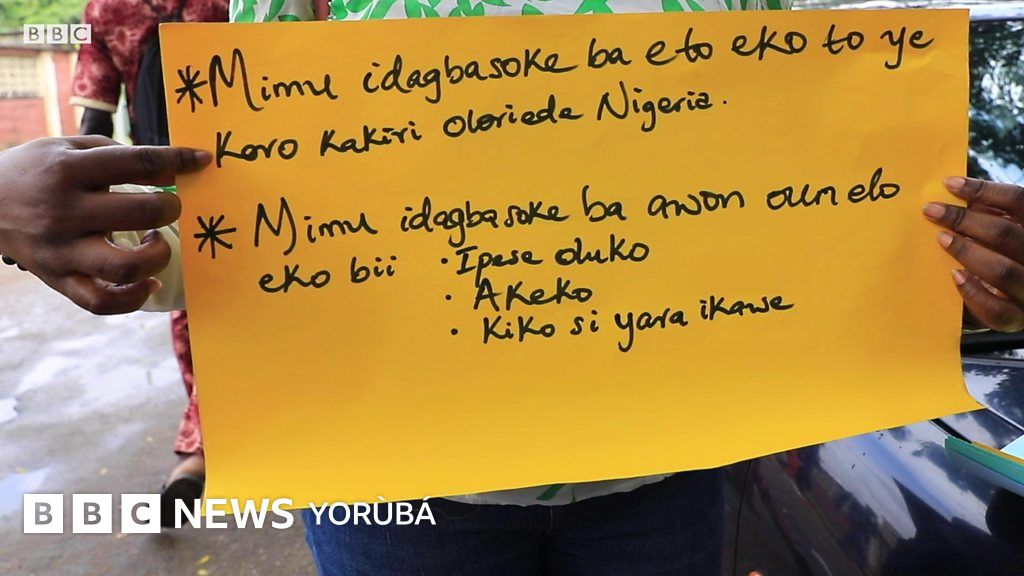 BBC
*Mimu idagbasoke ba eto eko to ye
Koro kakiri oloriede Nigeria.
* Mimu idagbasoke ba awon ounelo
eko bii • Ipese oluko
• Akeko
• Kiko si yara ikawe
BBC NEWS YORÙBÁ